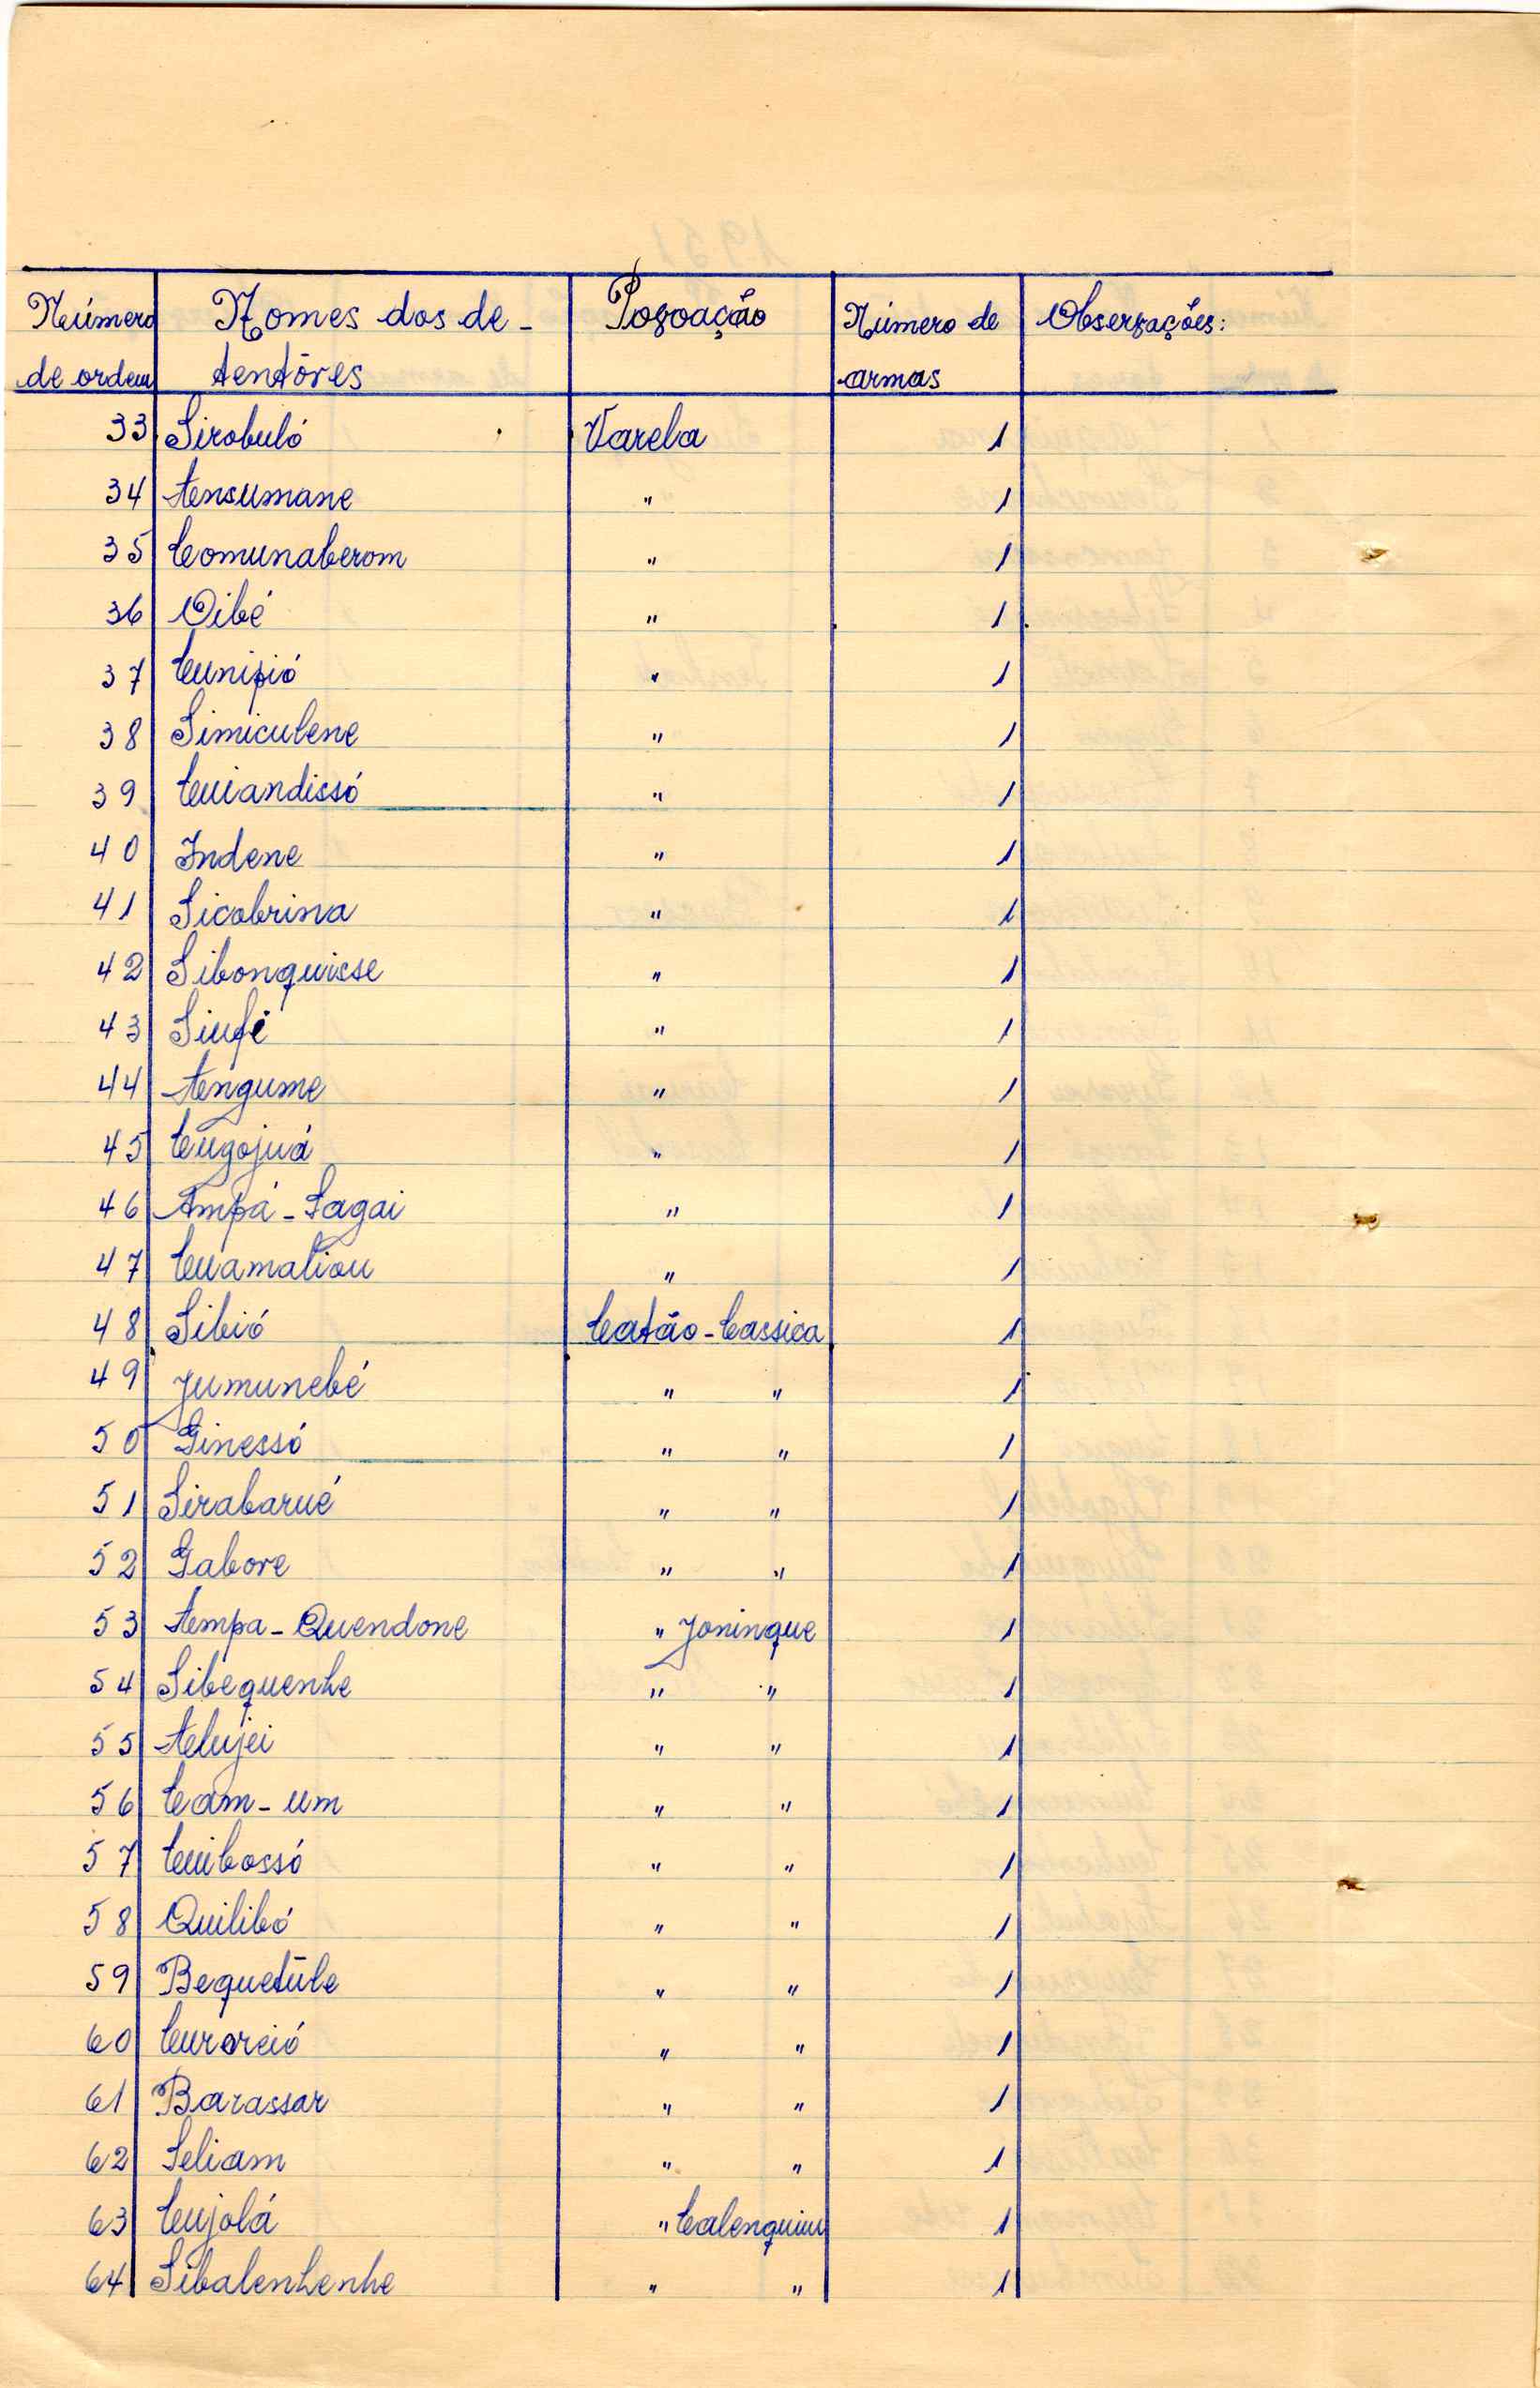 Número Nomes dos de- Povoação Número de Observações:
de ordem tentôres armas
33 Sirobuló Varela 1
34 Tensumane " 1
35 Comunaberom " 1
36 Oibé " 1
37 Cunipió " 1
38 Simiculene " 1
39 Cuiandissó " 1
40 Indene " 1
41 Sicobrina " 1
42 Sibonquisse " 1
43 Siufé " 1
44 Tengume " 1
45 Cugojuá " 1
46 Ampá-Sagai " 1
47 Cuamaliou " 1
48 Sibió Catão-Cassica 1
49 Jumunebé " " 1
50 Ginessó " " 1
51 Sirabarué " " 1
52 Gabore " " 1
53 Tempa-Quendone " Joninque 1
54 Sibequenhe " " 1
55 Telujei " " 1
56 Cam-um " " 1
57 Cuibossó " " 1
58 Quilibó " " 1
59 Bequetúle " " 1
60 Curoreió " " 1
61 Barassar " " 1
62 Seliam " " 1
63 Cujolá " Calenquiu 1
64 Sibalenhenhe " " 1